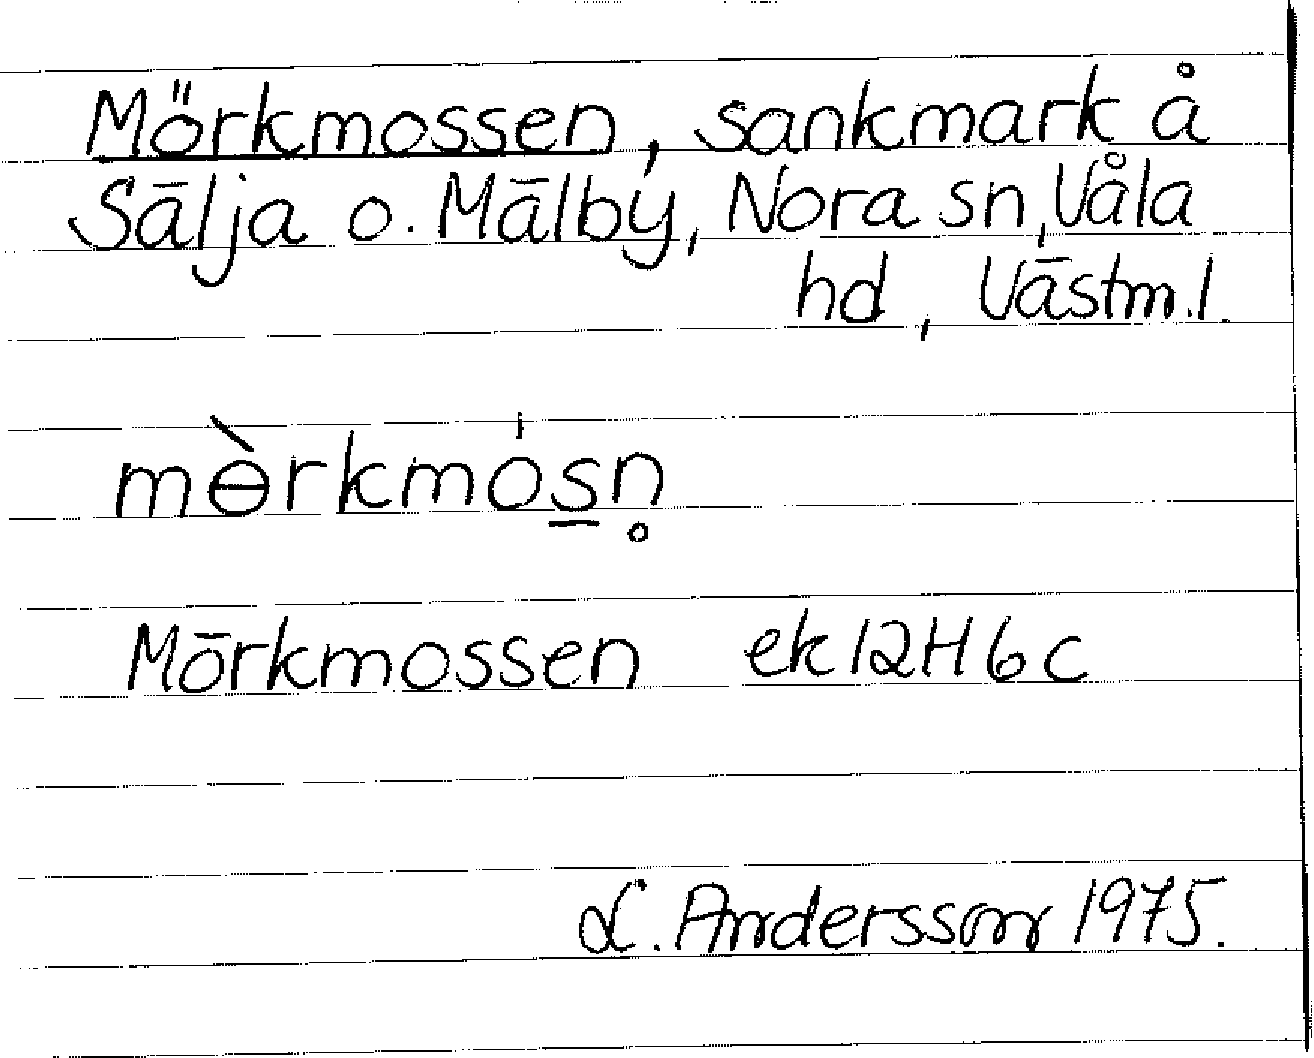 Mörkmossen, sankmark å
Sälja o. Mälby, Nora sn, Våla
hd, Västm.l.
mɵ̀rkmósn̥
Mörkmossen ek 12H6c
L. Andersson 1975.